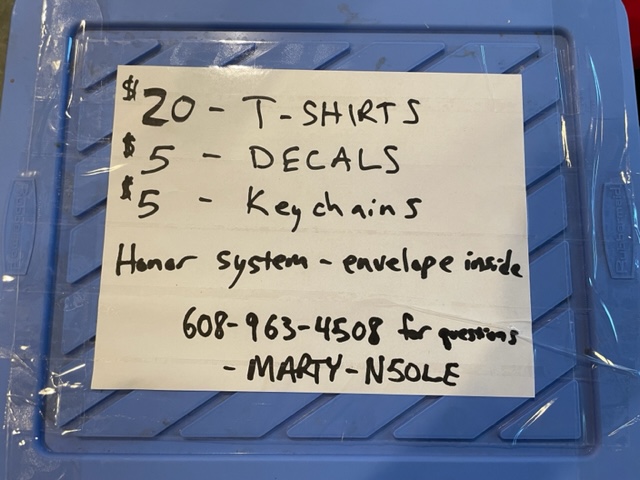 $20 - T-SHIRTS
$5 - DECALS
$5 - Keychains
Honor system - envelope inside
608-963-4508 for questions
- MARTY - N5OLE